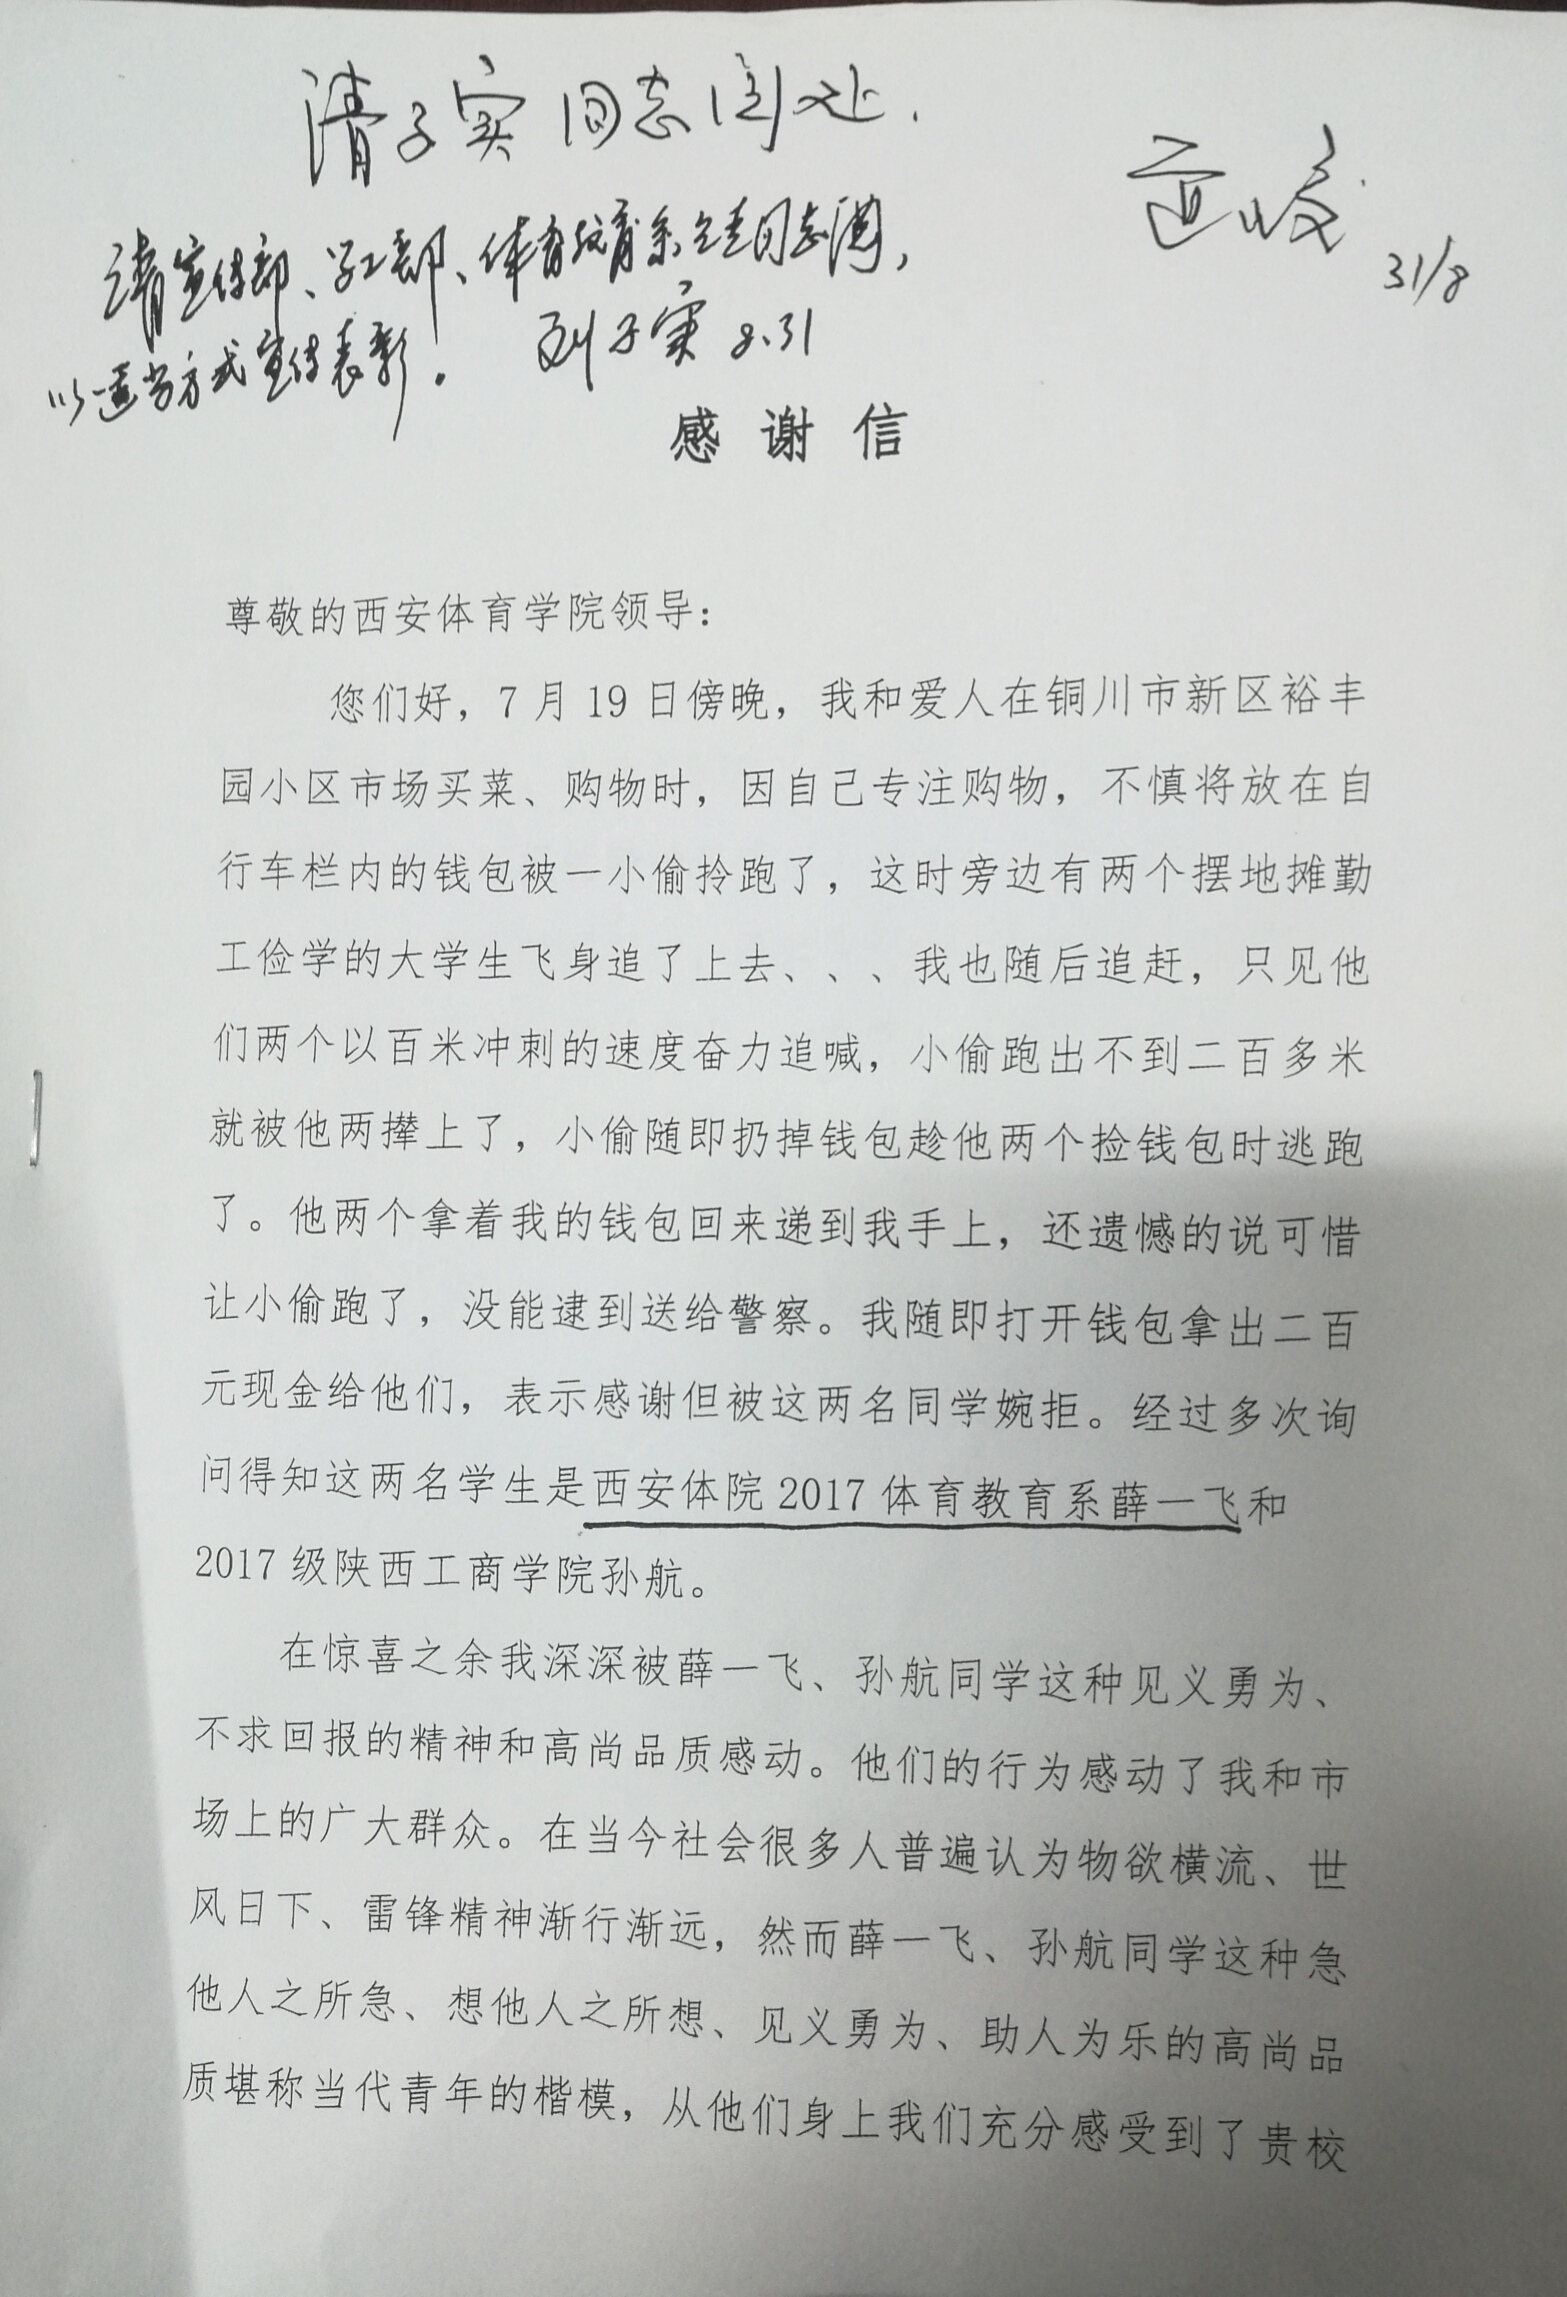 请子实同志阅处.
31/8
请宣传部、学工部、体育教育系主任同志阅,
以适当方式宣传表彰。 刘子实 8.31
感谢信
尊敬的西安体育学院领导：
您们好，7月19日傍晚，我和爱人在铜川市新区裕丰
园小区市场买菜、购物时，因自己专注购物，不慎将放在自
行车栏内的钱包被一小偷拎跑了，这时旁边有两个摆地摊勤
工俭学的大学生飞身追了上去、、、我也随后追赶，只见他
们两个以百米冲刺的速度奋力追喊，小偷跑出不到二百多米
就被他两撵上了，小偷随即扔掉钱包趁他两个捡钱包时逃跑
了。他两个拿着我的钱包回来递到我手上，还遗憾的说可惜
让小偷跑了，没能逮到送给警察。我随即打开钱包拿出二百
元现金给他们，表示感谢但被这两名同学婉拒。经过多次询
问得知这两名学生是西安体院2017体育教育系薛一飞和
2017级陕西工商学院孙航。
在惊喜之余我深深被薛一飞、孙航同学这种见义勇为、
不求回报的精神和高尚品质感动。他们的行为感动了我和市
场上的广大群众。在当今社会很多人普遍认为物欲横流、世
风日下、雷锋精神渐行渐远，然而薛一飞、孙航同学这种急
他人之所急、想他人之所想、见义勇为、助人为乐的高尚品
质堪称当代青年的楷模，从他们身上我们充分感受到了贵校